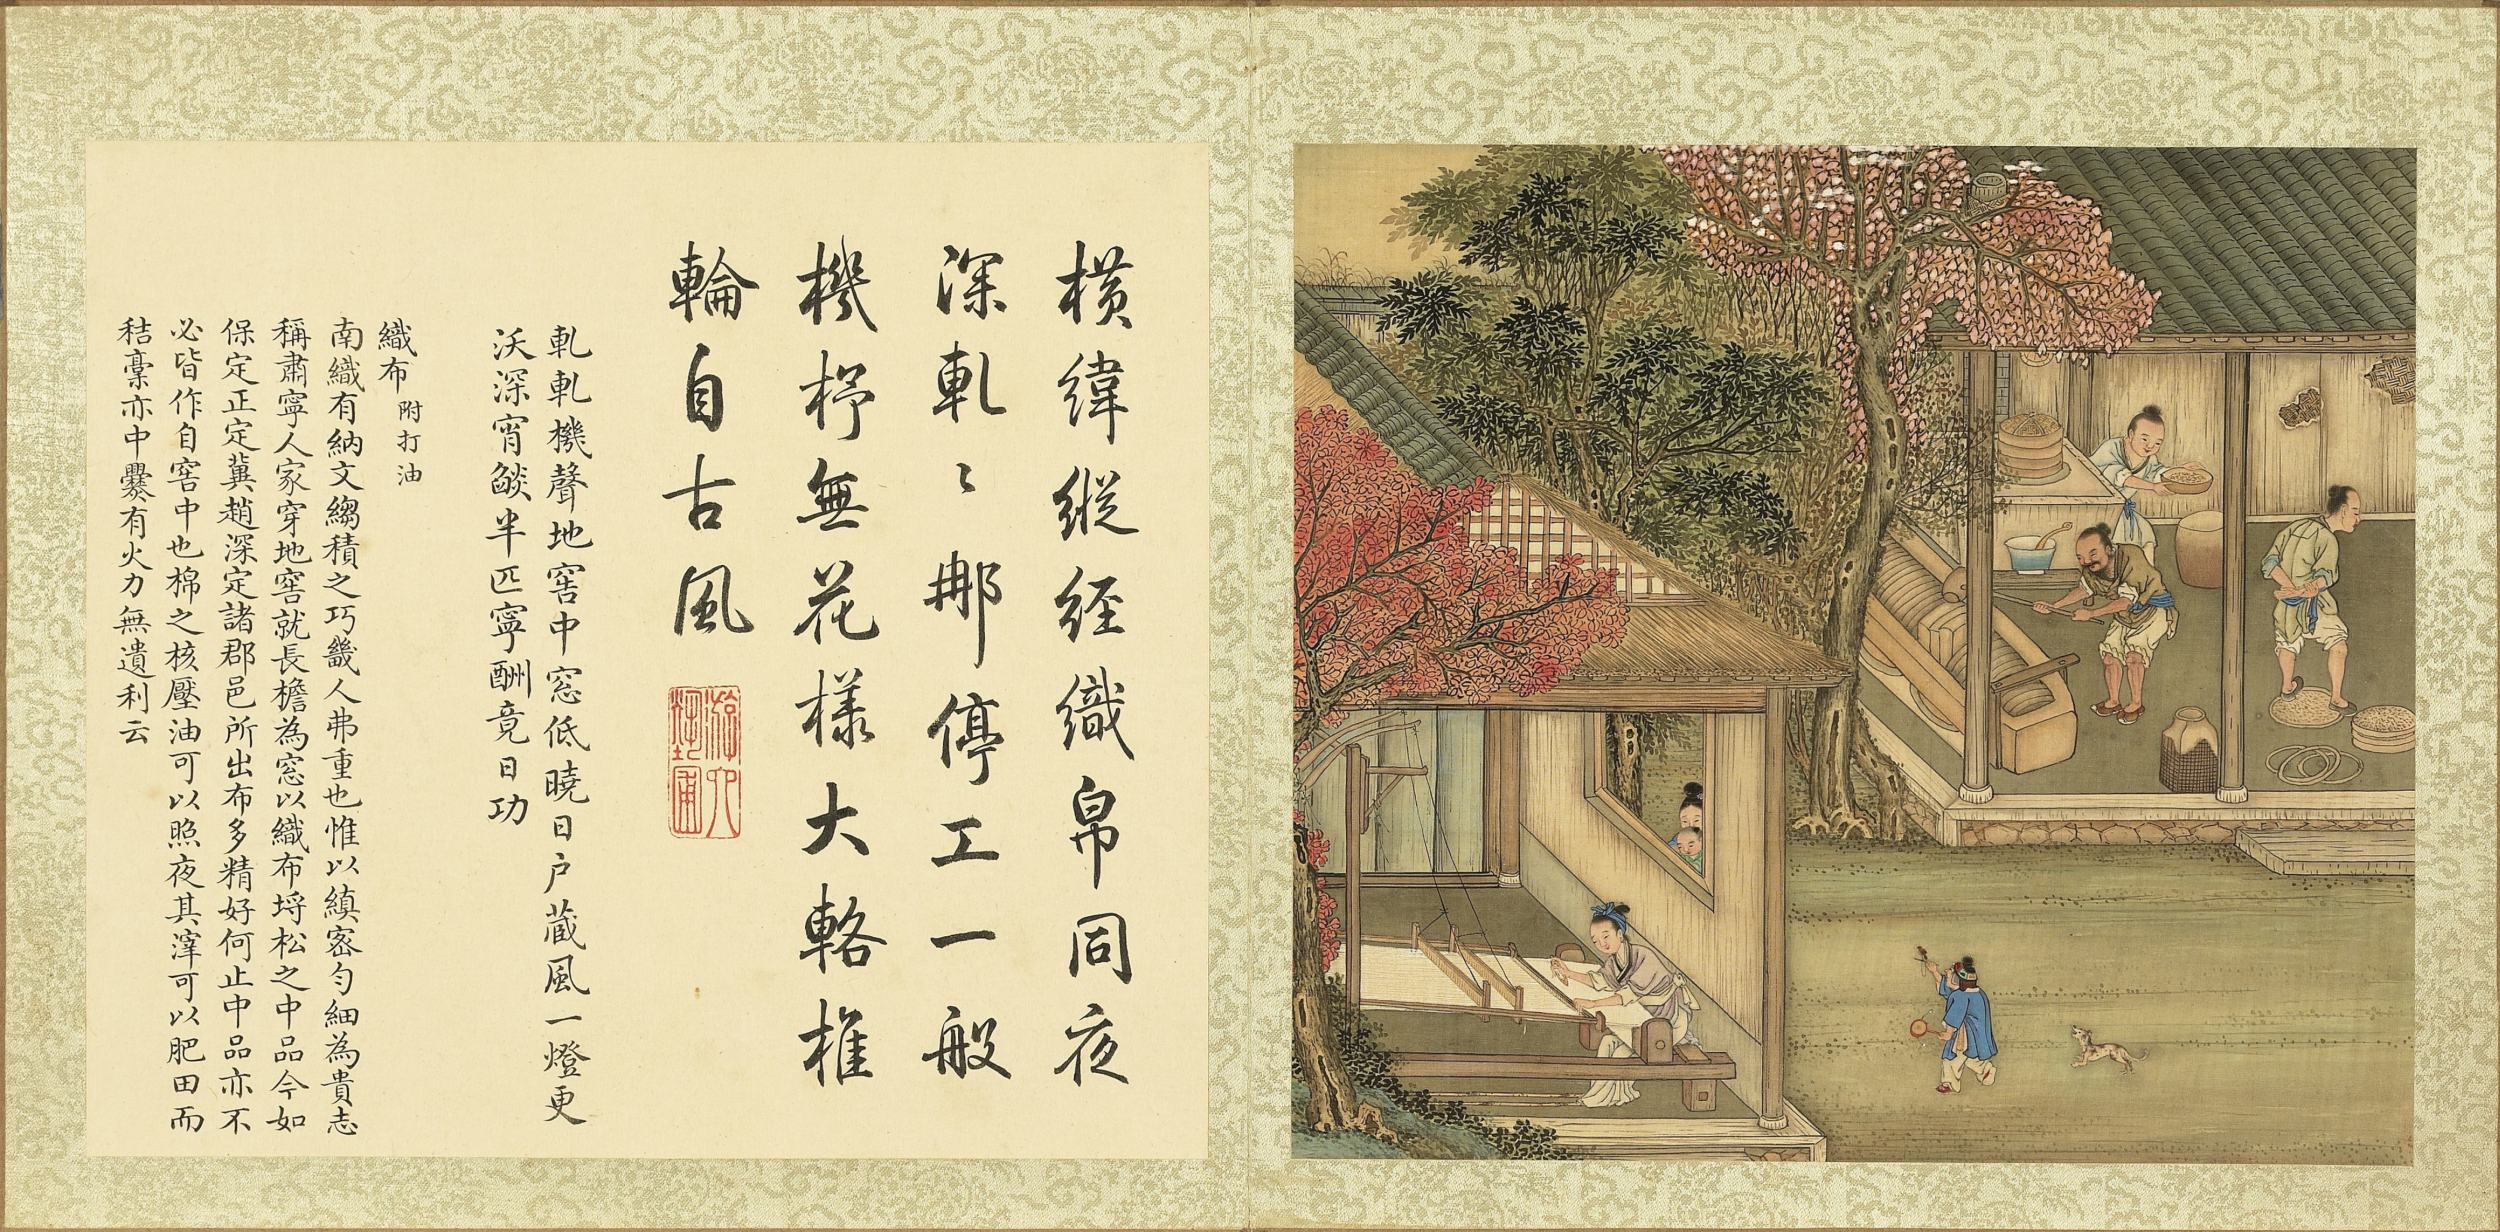 橫緯縱經織帛同夜
深軋〻那停工一般
機杼無花樣大輅椎
輪自古風
軋軋機聲地窖中窓低曉日戶藏風一燈更
沃深宵燄半匹寧酬竟日功
織布附打油
南織有納文縐積之巧畿人弗重也惟以縝密勻細為貴志
稱肅寧人家穿地窖就長檐為窓以織布埒松之中品今如
保定正定冀趙深定諸郡邑所出布多精好何止中品亦不
必皆作自窖中也棉之核壓油可以照夜其滓可以肥田而
秸稾亦中爨有火力無遺利云